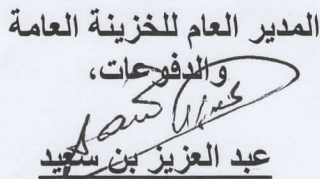 المدير العام للخزينة العامة
والدفوعات،
عبد العزيز بن سعيد